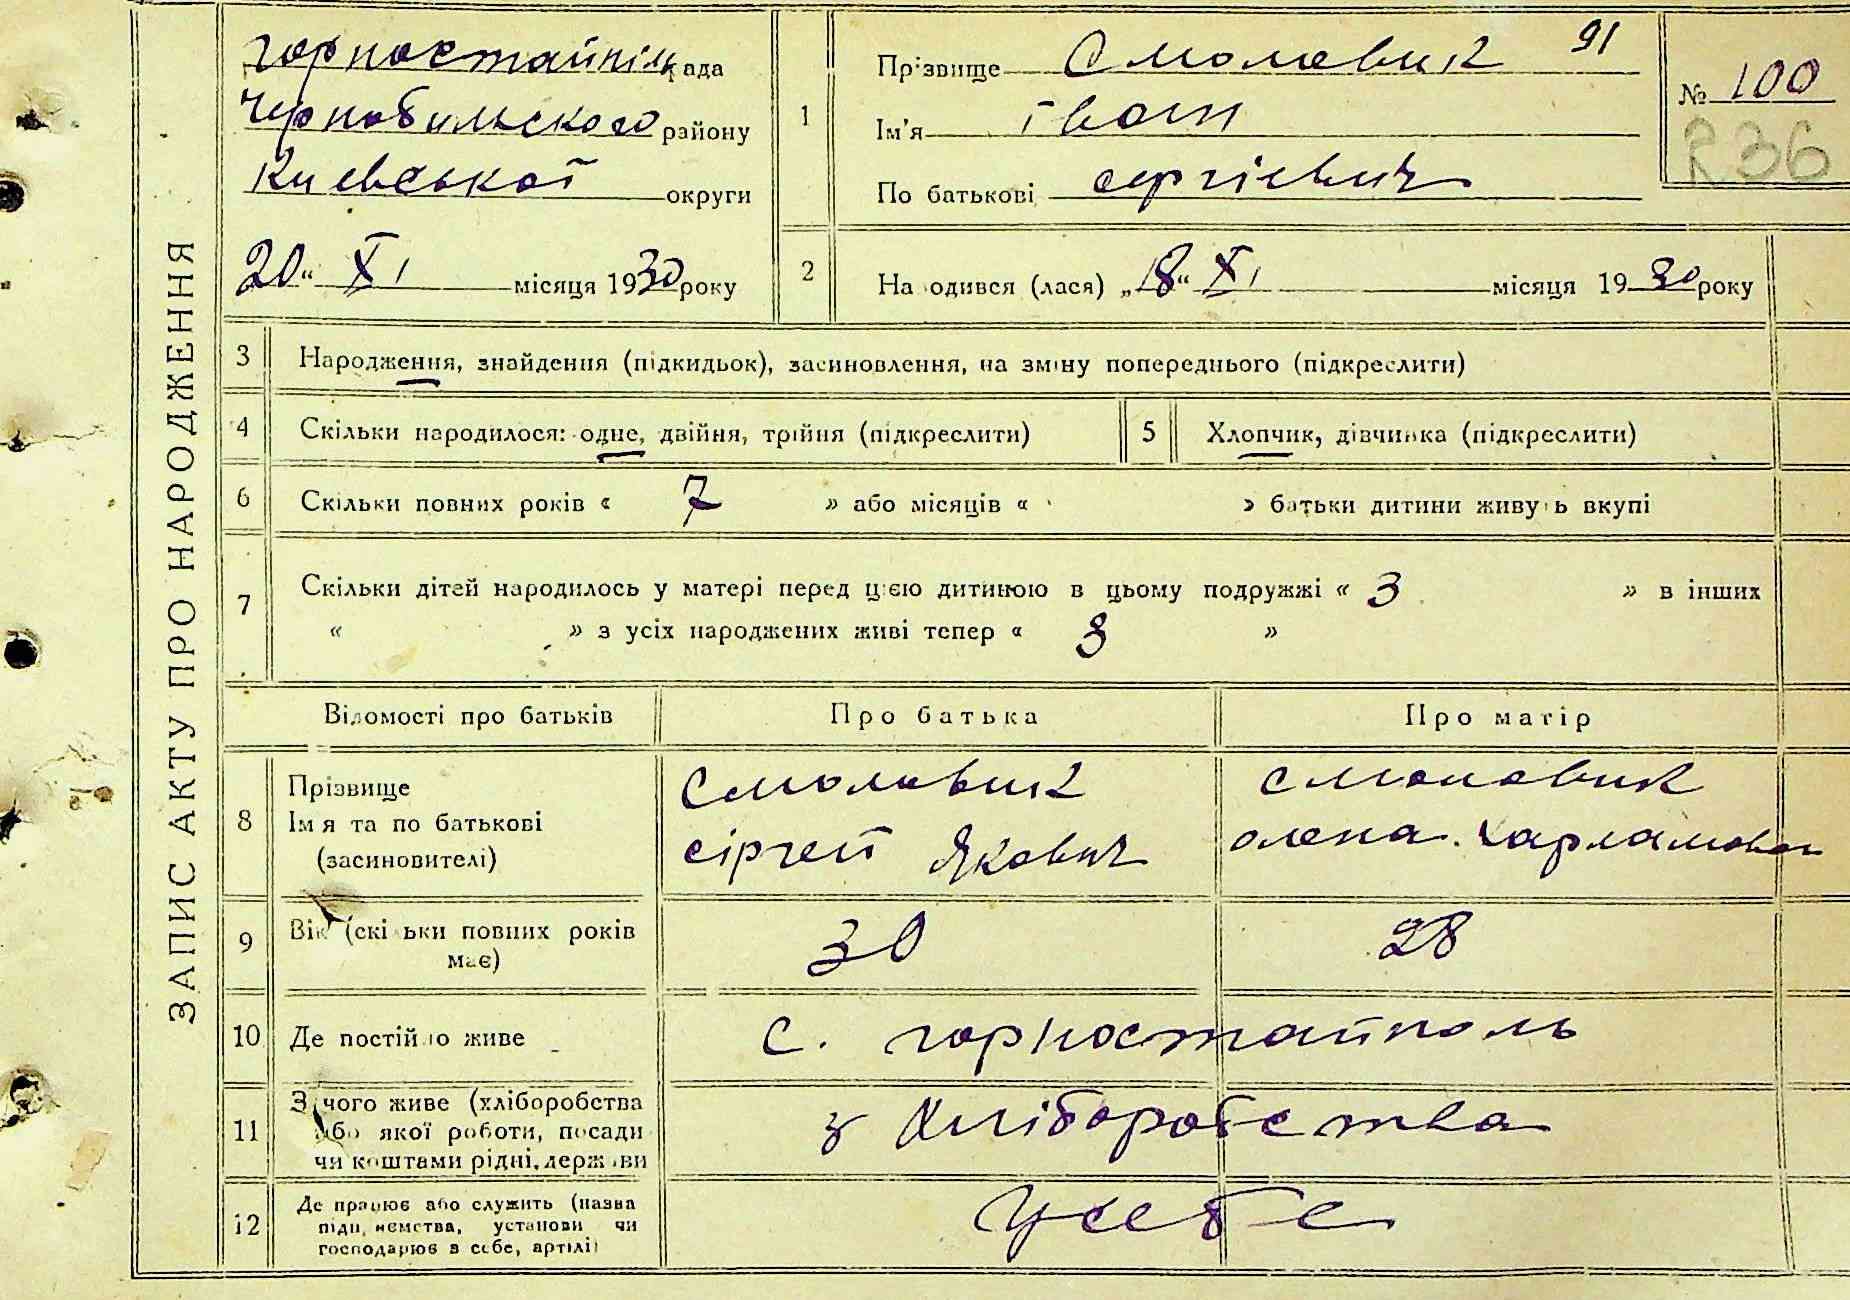 ЗАПИС АКТУ ПРО НАРОДЖЕННЯ
горностайпіль рада
Чернобильского району
Киевської округи
20 " XI місяця 1930 року
1
Прізвище Смоловик 91
Ім'я іван
По батькові сергієвич
№ 100
236
2
Народився (лася) „18" XI місяця 1930 року
3 Народження, знайдення (підкидьок), засиновлення, на зміну попереднього (підкреслити)
4 Скільки народилося: одне, двійня, трійня (підкреслити)
5 Хлопчик, дівчинка (підкреслити)
6 Скільки повних років « 7 » або місяців « » батьки дитини живуть вкупі
7 Скільки дітей народилось у матері перед цією дитиною в цьому подружжі « 3 » в інших
« » з усіх народжених живі тепер « 3 »
Відомості про батьків Про батька Про матір
8 Прізвище
Ім я та по батькові
(засиновителі)
Смоловик
сіргей Якович
смоловик
олена. харламовна
9 Вік (скільки повних років
має)
30 28
10 Де постійно живе с. горностайполь
11 З чого живе (хліборобства
або якої роботи, посади
чи коштами рідні, держави
з хліборобства
12 Де працює або служить (назва
підприємства, установи чи
господарює в себе, артілі)
У себе